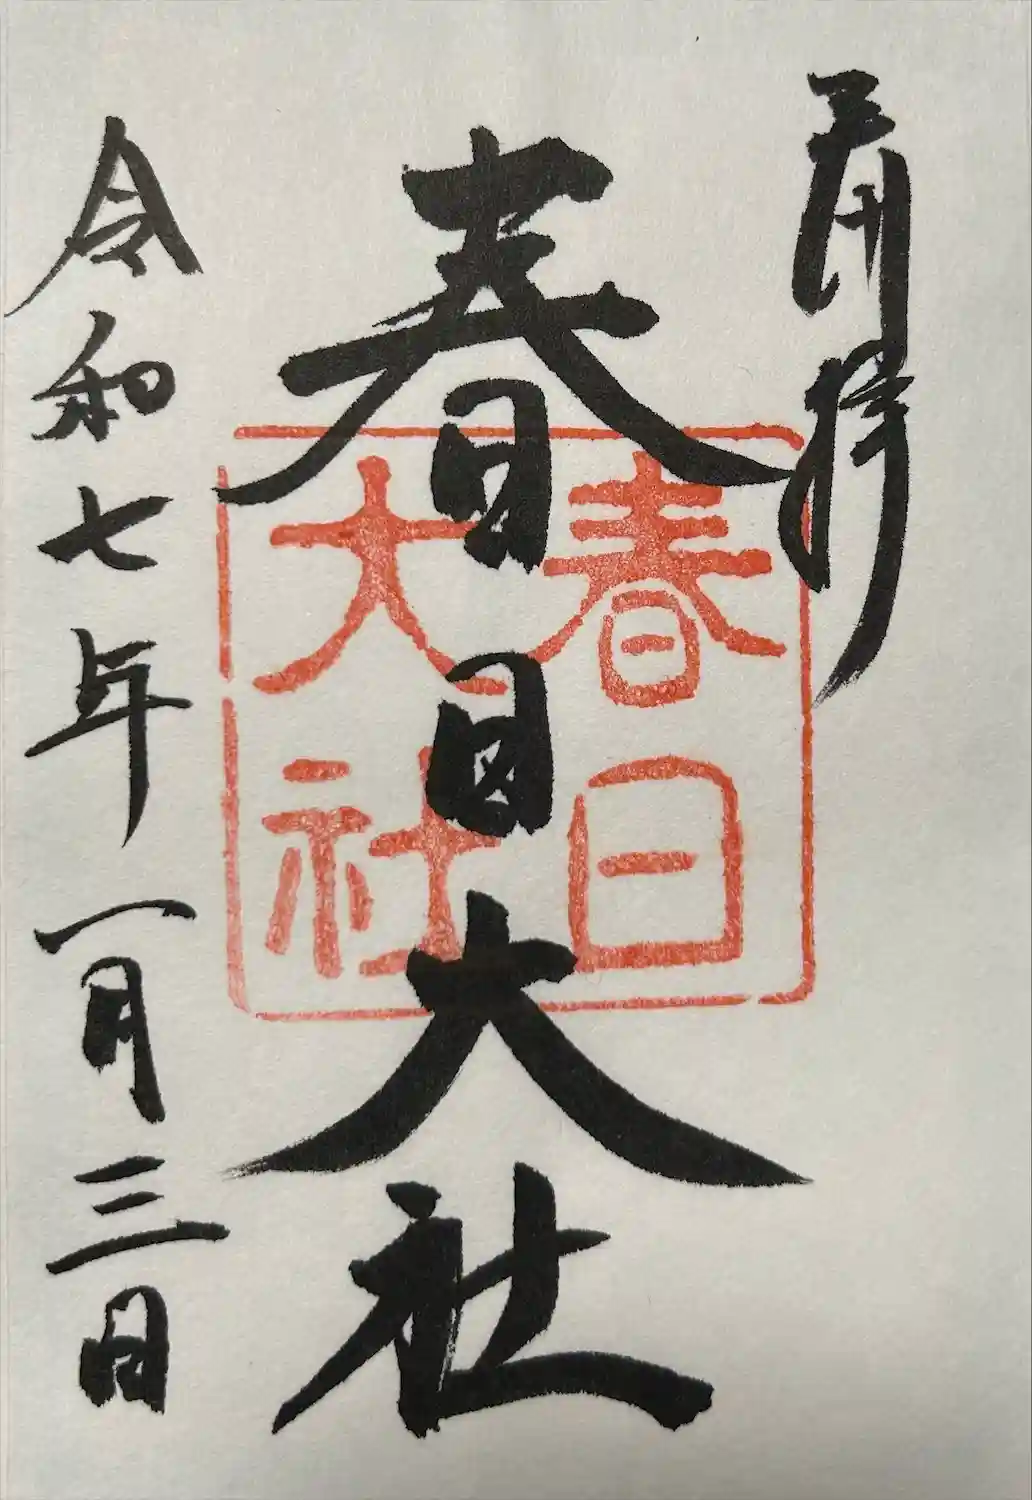 奉拝
春日大社
春日
大社
令和七年一月三日